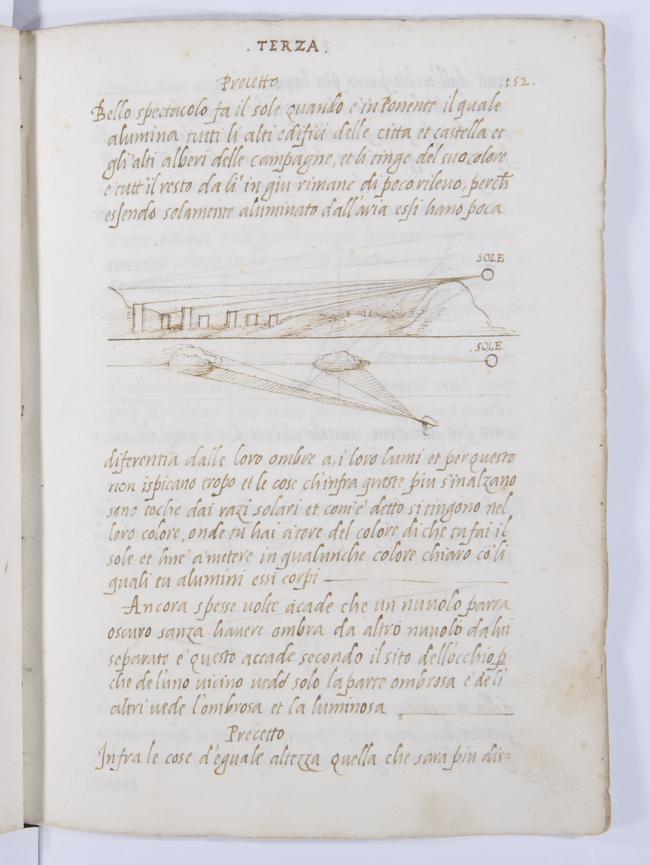 . TERZA .
Precetto
152.
Bello spectacolo fa il sole quando e in Ponente il quale
alumina tutti li alti edifici delle citta et castella et
gli alti alberi delle campagne, et li tinge del suo colore
e tutt'il resto da li' in giu rimane di poco rilevo, perch̄
essendo solamente aluminato dall'aria essi hano poca
SOLE
. SOLE .
differentia dalle loro ombre a, i loro lumi et per questo
non ispicano tropo et le cose ch'infra queste piu s'inalzano
sono toche dai razi solari et com'e' detto si tingono nel
loro colore, onde tu hai a tore del colore di che tu fai il
sole et àne a metere in qualunche colore chiaro cō li
quali tu alumini essi corpi
Ancora spesse volte acade che un nuvolo parra
oscuro sanza havere ombra da altro nuvolo da lui
separato e questo accade secondo il sito dell'occhio p̱
che de l'uno vicino vede solo la parte ombrosa e de li
altri vede l'ombrosa et la luminosa
Precetto
Infra le cose d'eguale altezza quella che sara piu dis=